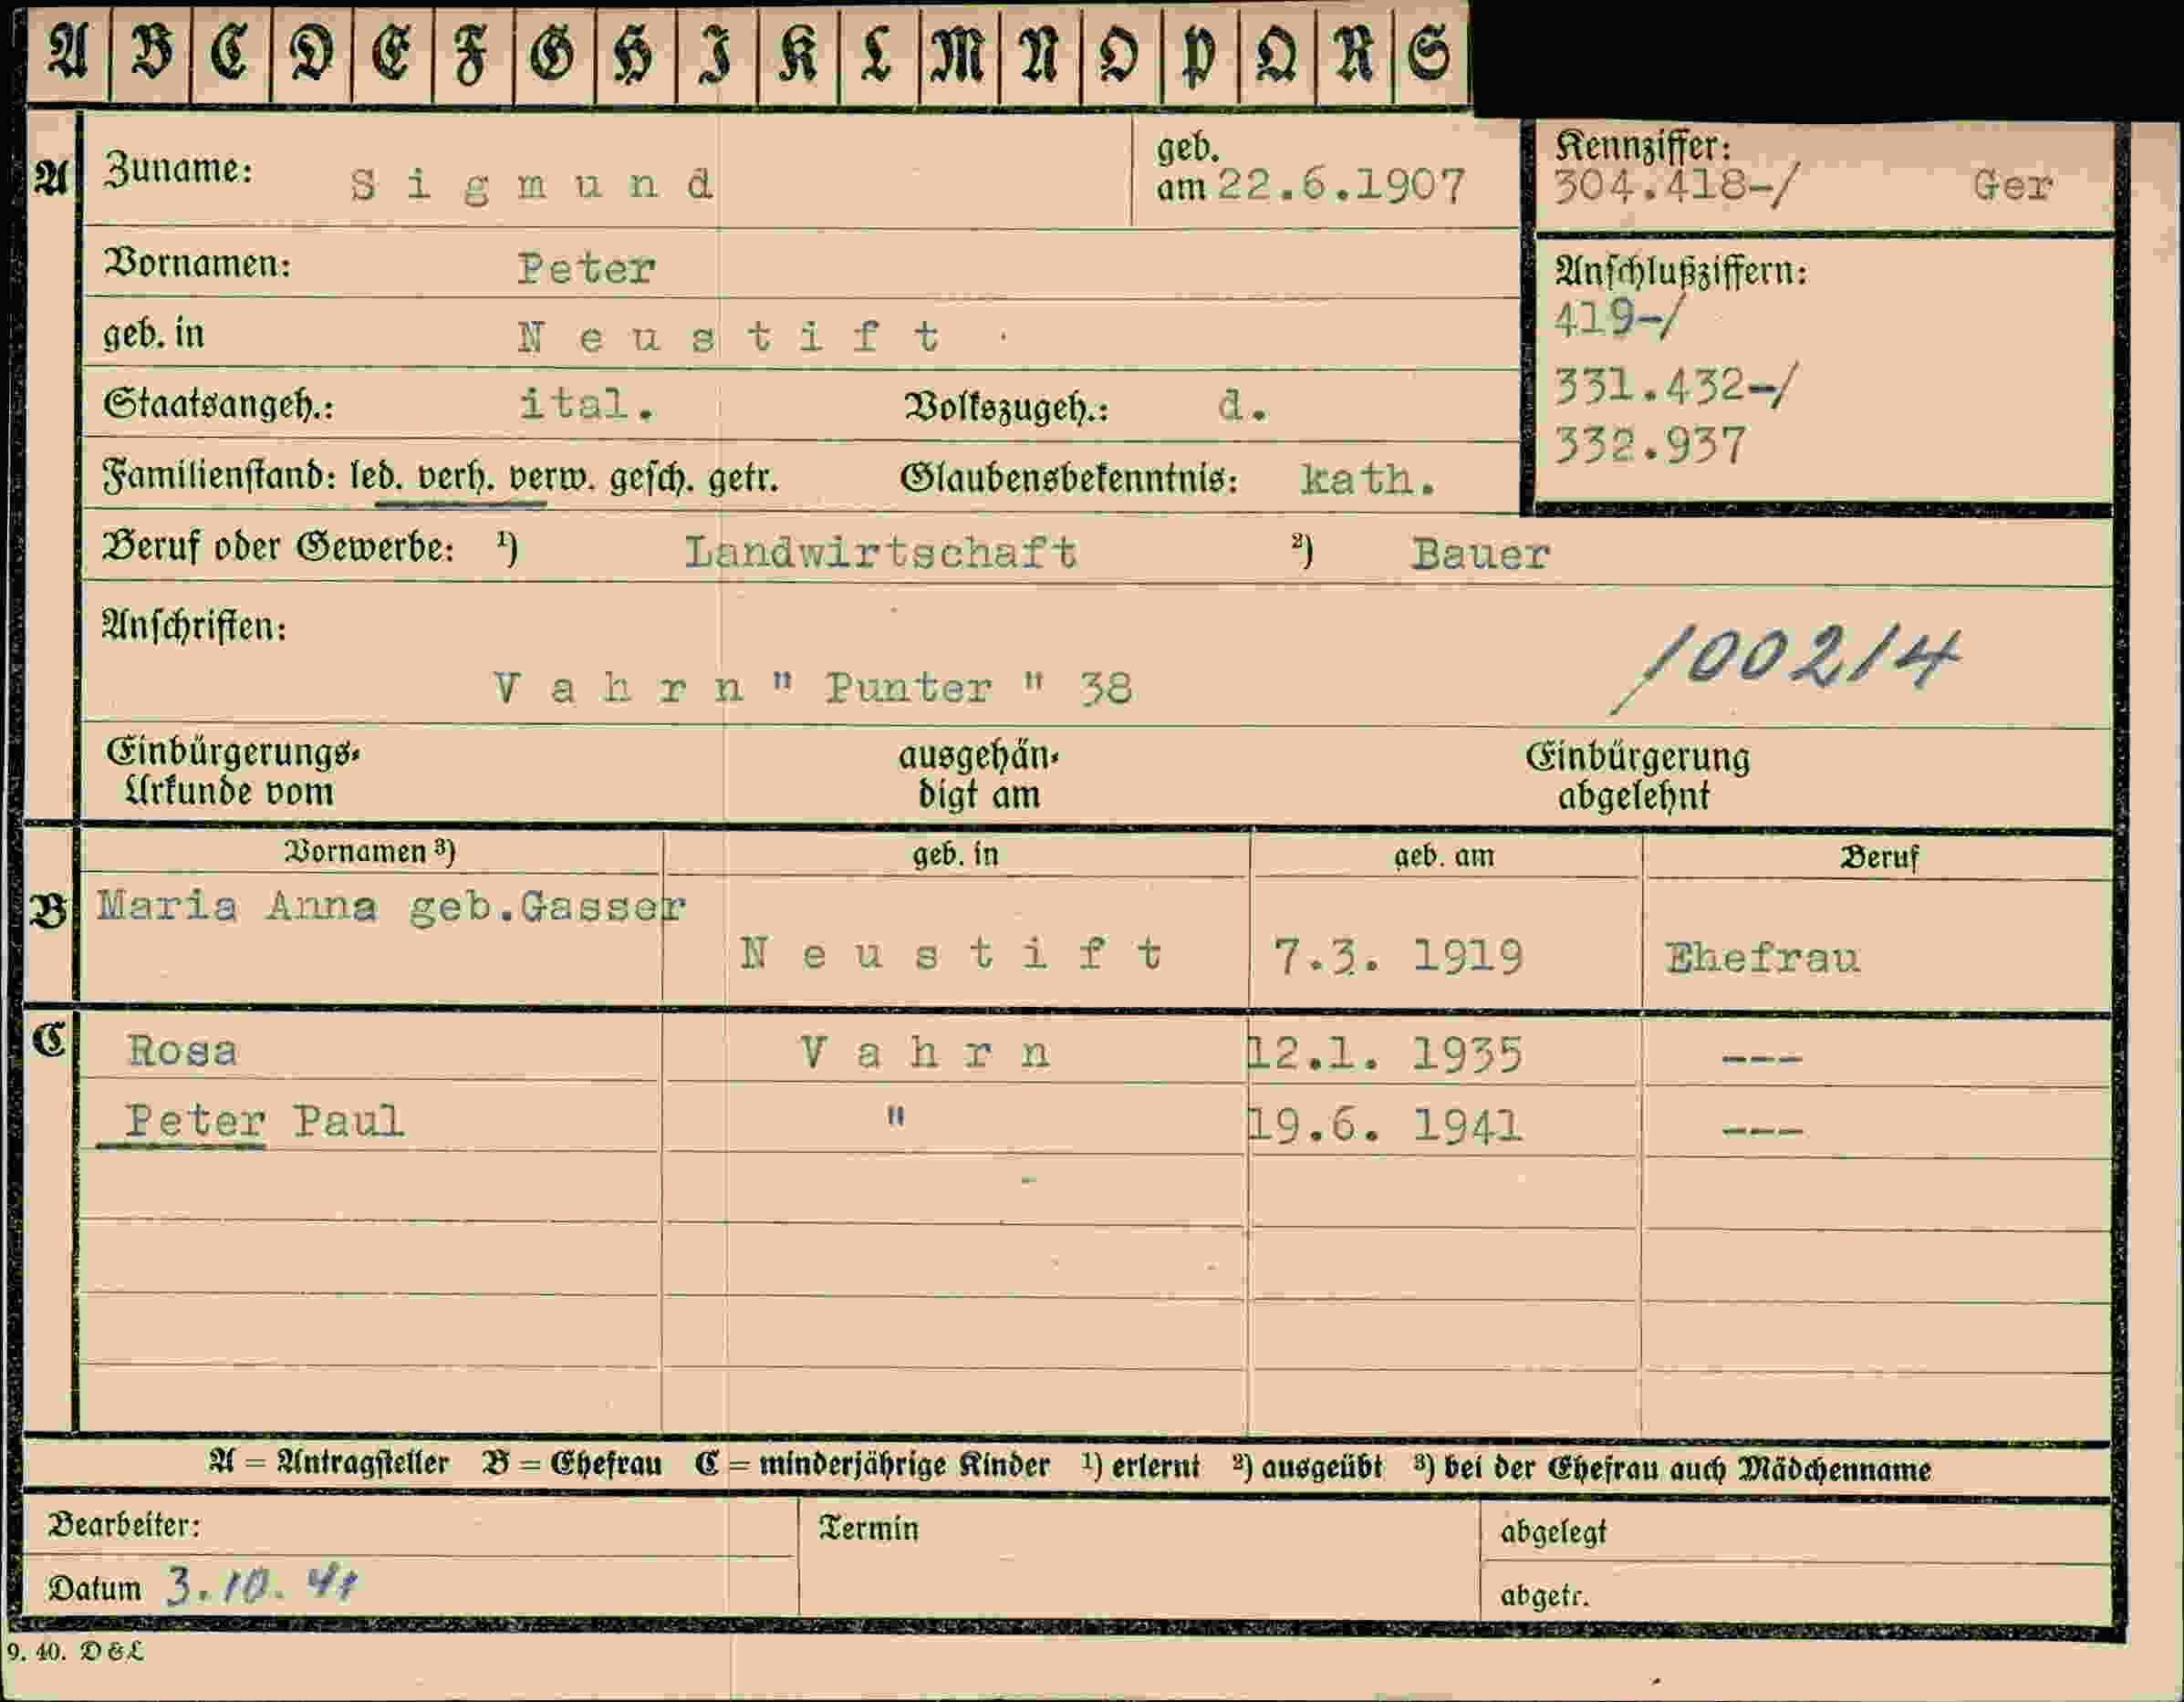 A B C D E F G H I K L M N O P Q R S
A Zuname: Sigmund geb. am 22.6.1907
Kennziffer: 304.418-/ Ger
Vornamen: Peter
Anschlußziffern:
419-/
331.432-/
332.937
geb. in Neustift
Staatsangeh.: ital. Volkszugeh.: d.
Familienstand: led. verh. verw. gesch. getr. Glaubensbekenntnis: kath.
Beruf oder Gewerbe: ¹) Landwirtschaft ²) Bauer
Anschriften:
100214
Vahrn " Punter " 38
Einbürgerungs-Urkunde vom ausgehän-digt am Einbürgerung abgelehnt
Vornamen ³) geb. in geb. am Beruf
B Maria Anna geb.Gasser
Neustift 7.3. 1919 Ehefrau
C Rosa Vahrn 12.1. 1935 ---
Peter Paul " 19.6. 1941 ---
A = Antragsteller B = Ehefrau C = minderjährige Kinder ¹) erlernt ²) ausgeübt ³) bei der Ehefrau auch Mädchenname
Bearbeiter: Termin abgelegt
Datum 3.10.41 abgetr.
9. 40. D & L